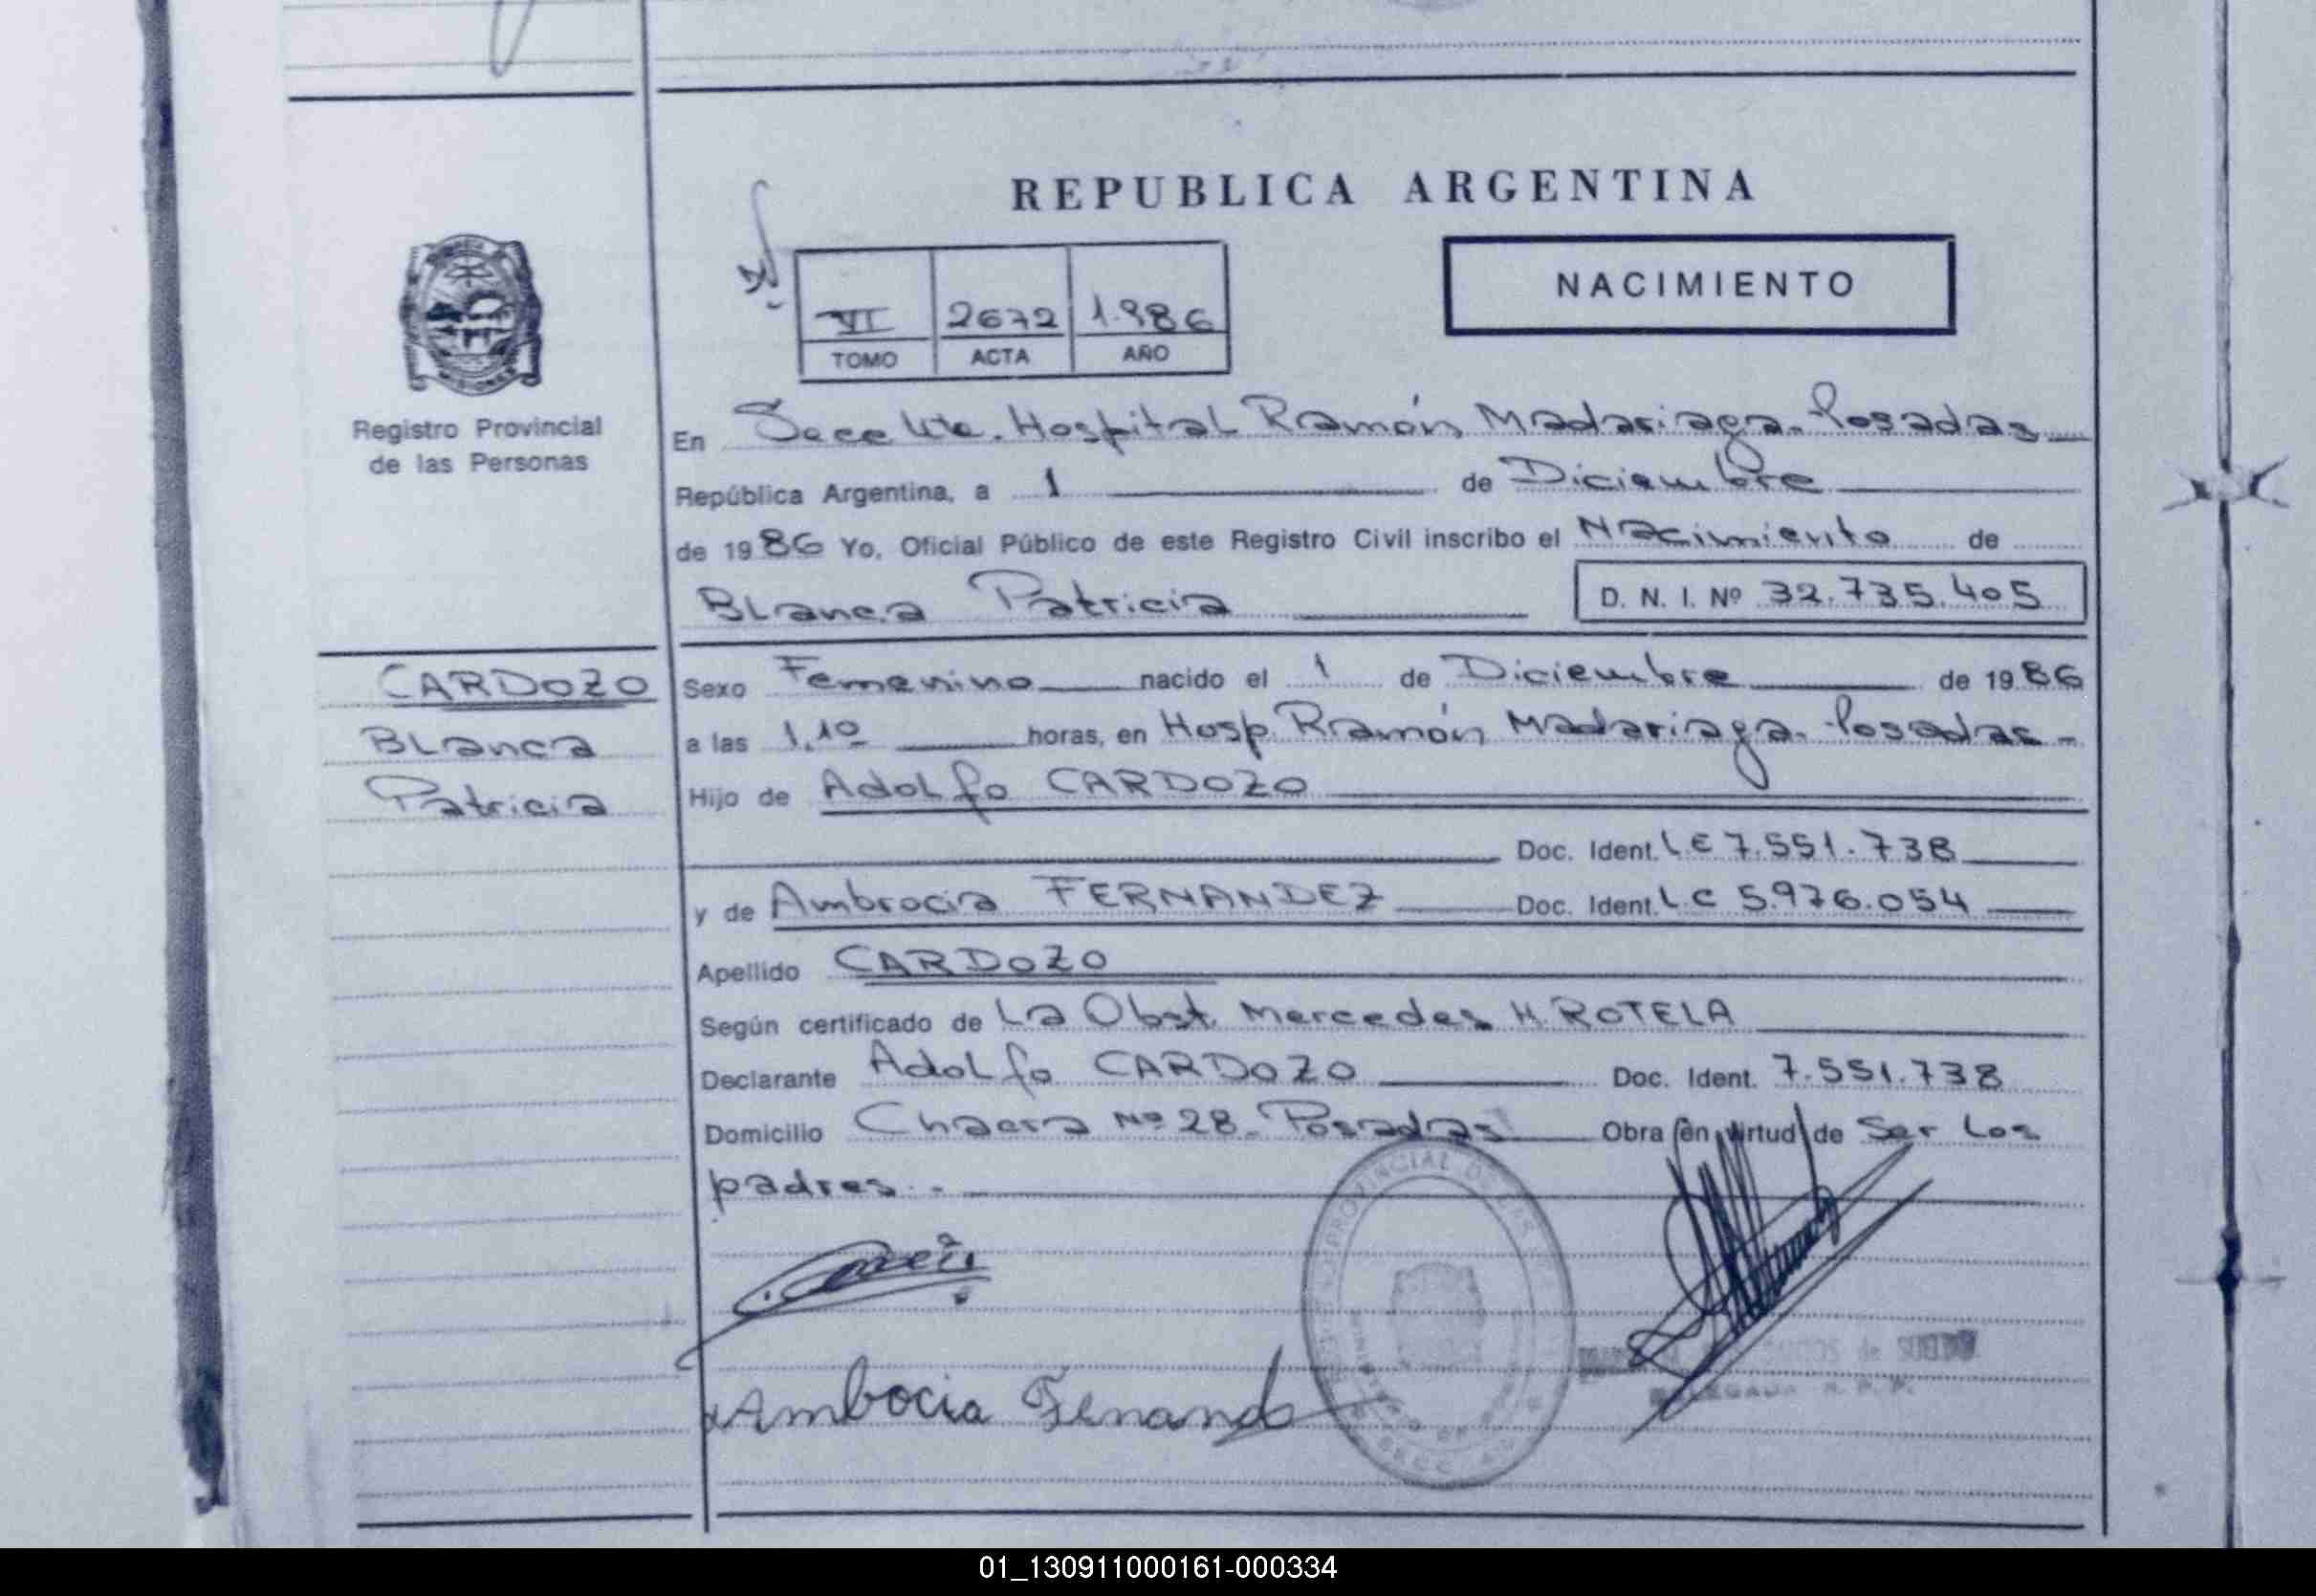 REPUBLICA ARGENTINA
NACIMIENTO
VI 2672 1.986
TOMO ACTA AÑO
Registro Provincial
de las Personas
En Hospital Ramón Madariaga. Posadas
República Argentina, a 1 de Diciembre
de 1986 Yo, Oficial Público de este Registro Civil inscribo el Nacimiento de
Blanca Patricia D. N. I. Nº 32.735.405
CARDOZO
Blanca
Patricia
Sexo Femenino nacido el 1 de Diciembre de 1986
a las 1,10 horas, en Hosp. Ramón Madariaga. Posadas-
Hijo de Adolfo CARDOZO
Doc. Ident. LE 7.551.738
y de Ambrocia FERNANDEZ Doc. Ident. LC 5.976.054
Apellido CARDOZO
Según certificado de La Obst. Mercedes H. ROTELA
Declarante Adolfo CARDOZO Doc. Ident. 7.551.738
Domicilio Chacra Nº 28- Posadas Obra en virtud de Ser Los
padres.-
PROVINCIAL DE LAS
Ambocia Fenand
01_130911000161-000334